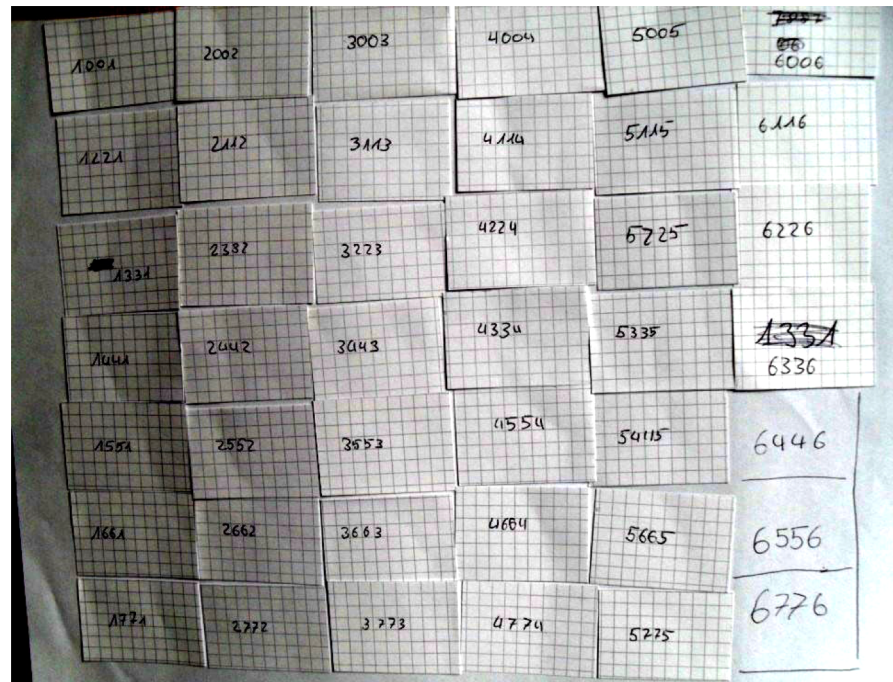 1001 2002 3003 4004 5005 6006
1221 2112 3113 4114 5115 6116
1331 2332 3223 4224 5225 6226
1441 2442 3443 4334 5335 1331
6336
1551 2552 3553 4554 5445 6446
1661 2662 3663 4664 5665 6556
1771 2772 3773 4774 5775 6776